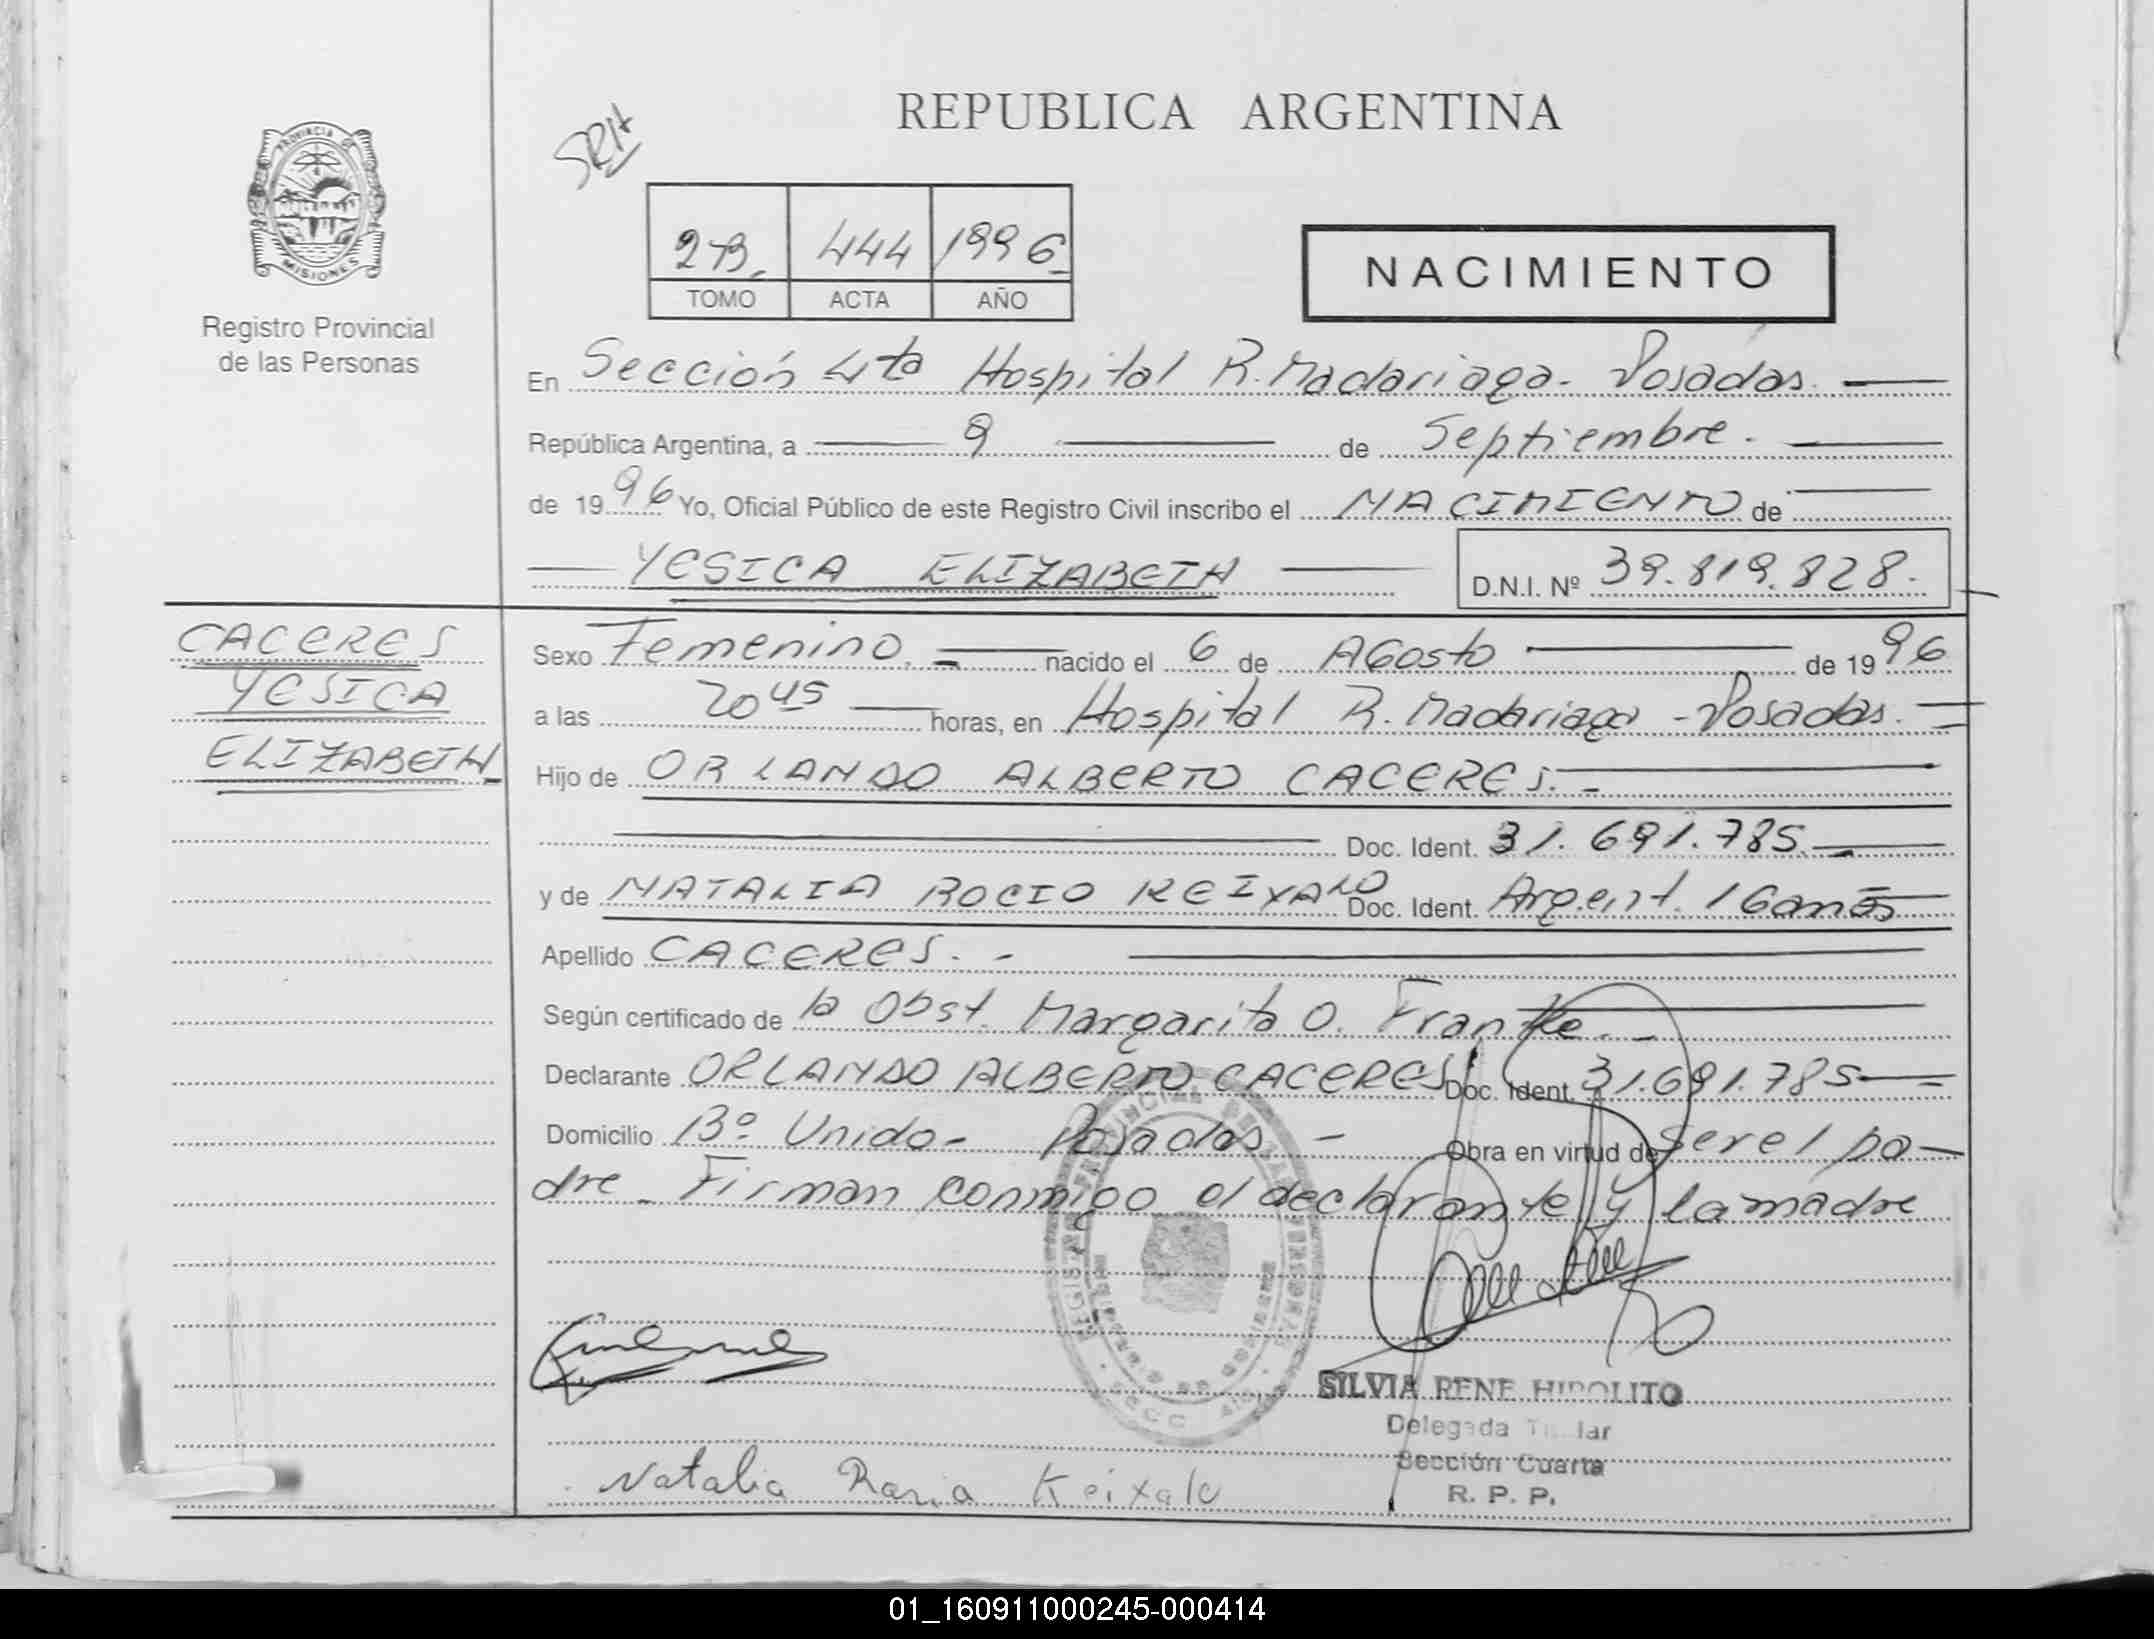 REPUBLICA ARGENTINA
SRH
PROVINCIA DE
MISIONES
Registro Provincial
de las Personas
2-B. 444 1996
TOMO ACTA AÑO
NACIMIENTO
En Sección 4ta Hospital R. Madariaga - Posadas.
República Argentina, a 9 de Septiembre.
de 1996 Yo, Oficial Público de este Registro Civil inscribo el NACIMIENTO de
YESICA ELIZABETH D.N.I. Nº 39.819.828.
CACERES
YESICA
ELIZABETH
Sexo Femenino. nacido el 6 de Agosto de 1996
a las 20 45 horas, en Hospital R. Madariaga - Posadas.
Hijo de ORLANDO ALBERTO CACERES. -
Doc. Ident. 31.691.785.
y de NATALIA ROCIO KEIXALO Doc. Ident. Argent. 16 años
Apellido CACERES. -
Según certificado de la Obst. Margarita O. Franke. -
Declarante ORLANDO ALBERTO CACERES Doc. Ident. 31.691.785
Domicilio Bº Unido - Posadas - Obra en virtud de ser el pa-
dre - Firman conmigo el declarante y la madre
SILVIA RENE HIPOLITO
Delegada Titular
Sección Cuarta
R. P. P.
Natalia Keixalo
01_160911000245-000414